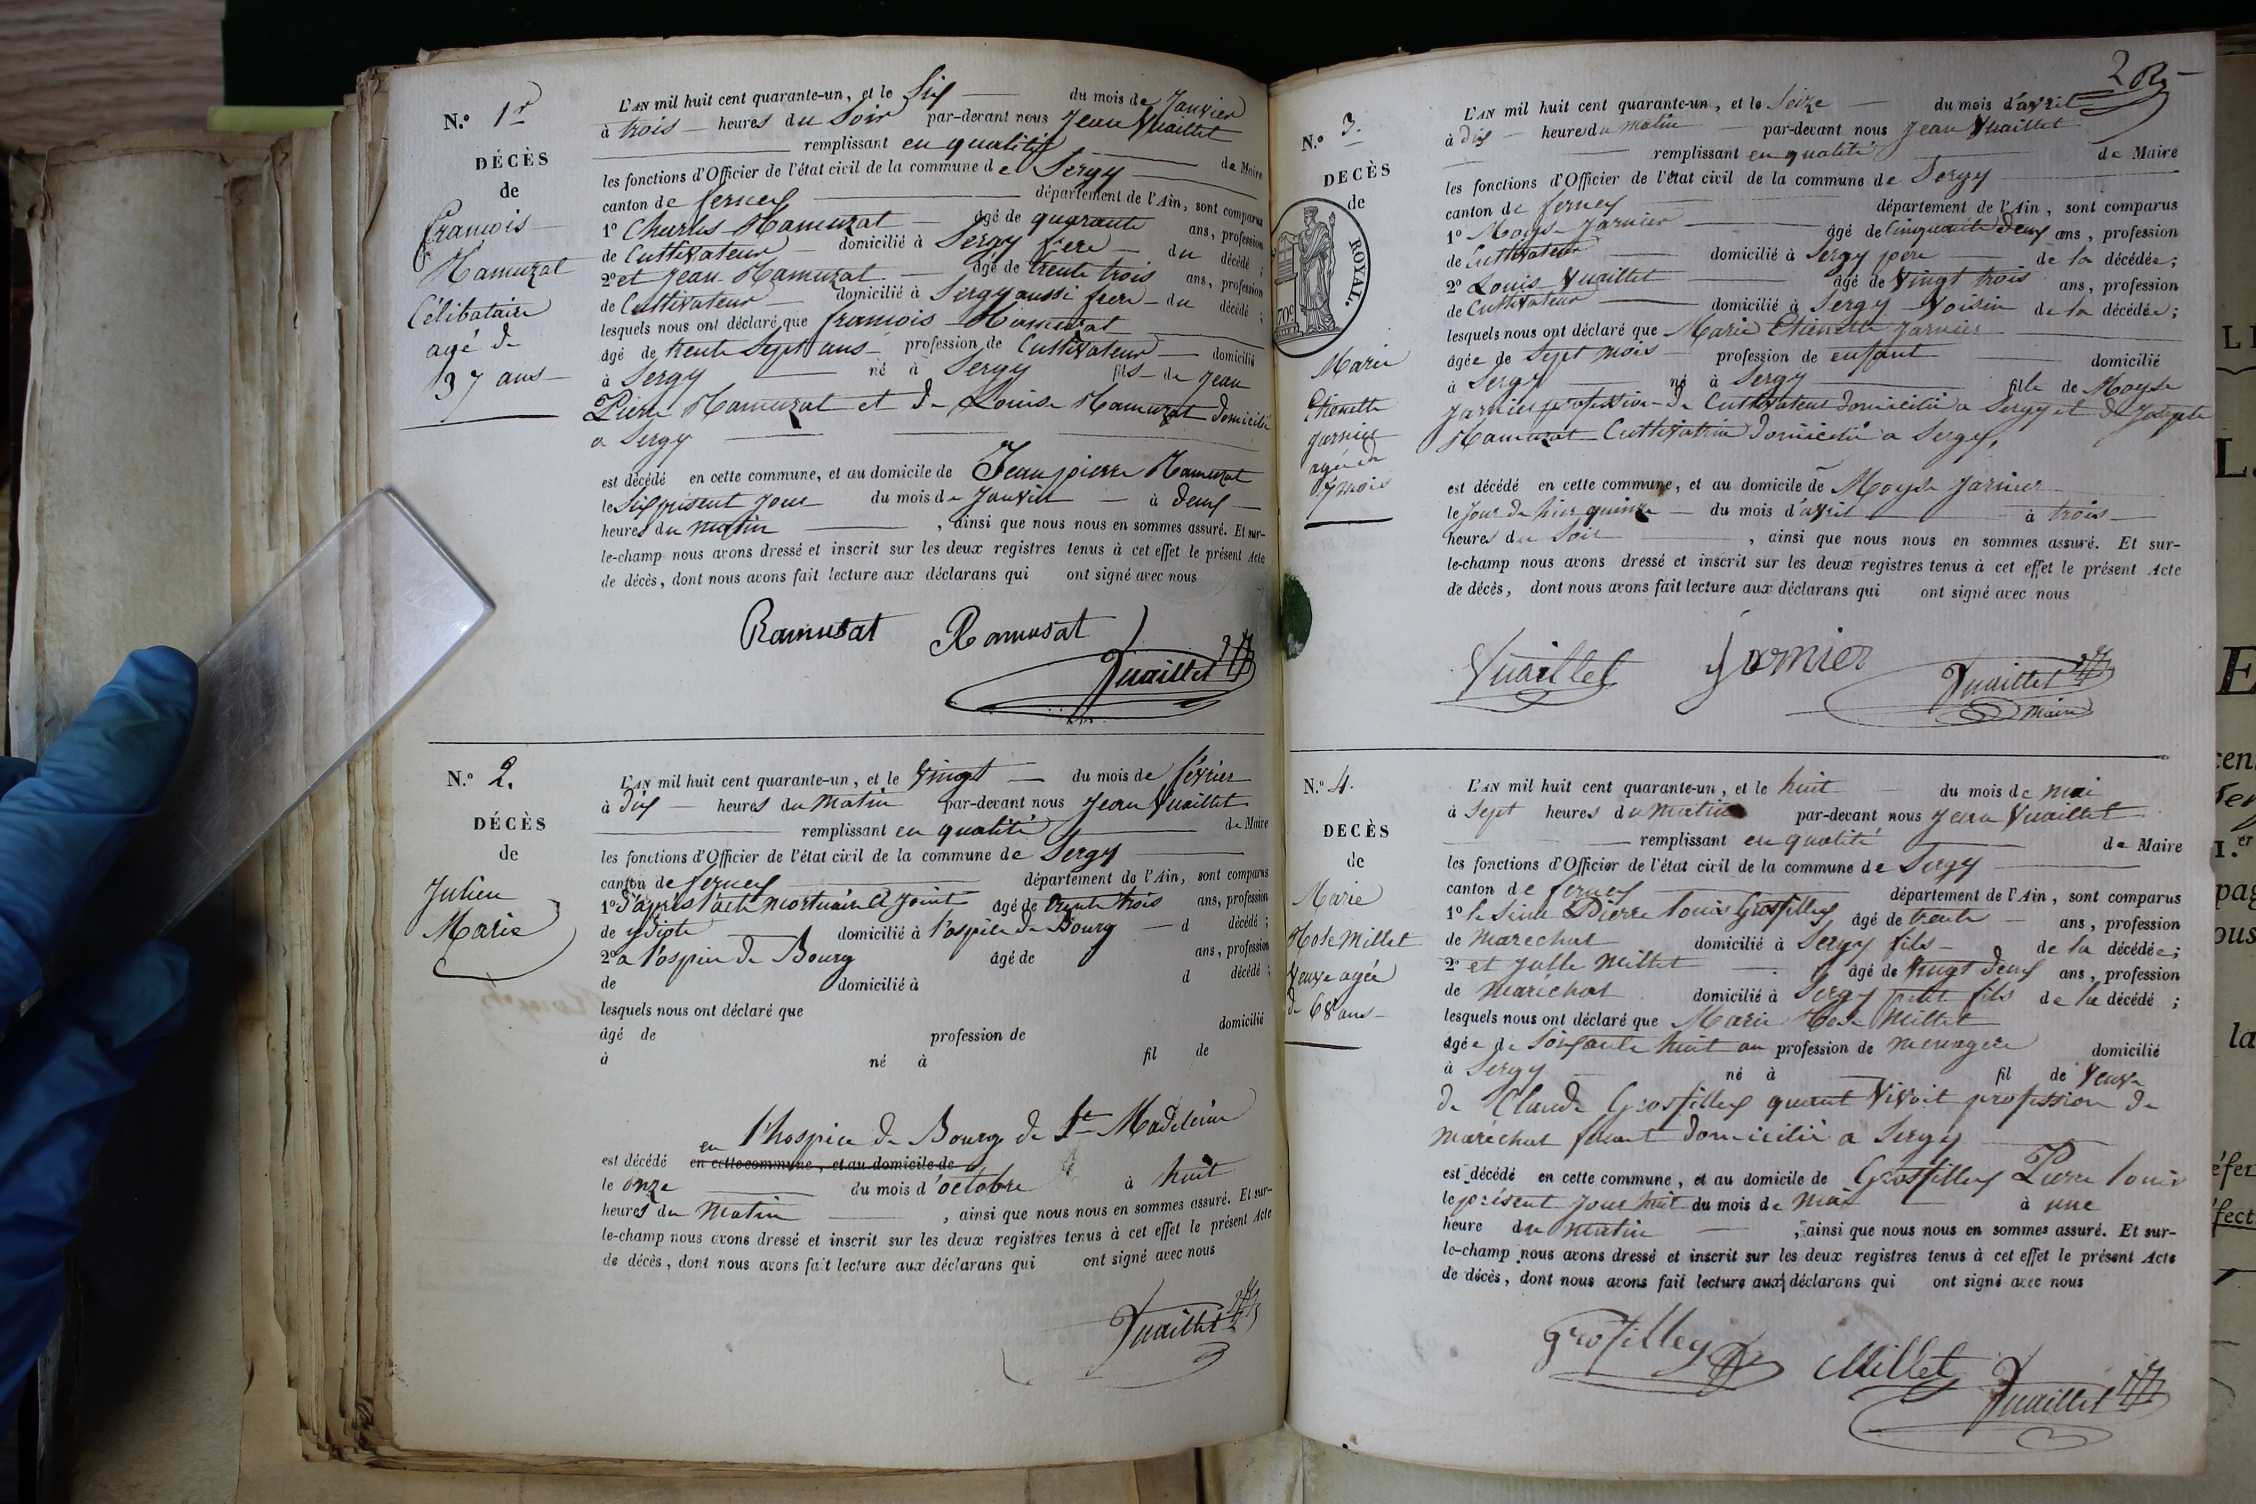 N.º 1r
DÉCÈS
de
François
Ramuzat
Célibataire
agé de
37 ans
L'AN mil huit cent quarante-un, et le Six du mois de Janvier
à trois heures du Soir par-devant nous Jean Vuaillet
remplissant en qualité de Maire
les fonctions d'Officier de l'état civil de la commune de Sergy
canton de ferney département de l'Ain, sont comparus
1º Charles Ramuzat âgé de quarante ans, profession
de Cultivateur domicilié à Sergy frere du décédé ;
2º et Jean Ramuzat âgé de trente trois ans, profession
de Cultivateur domicilié à Sergy aussi frere du décédé ;
lesquels nous ont déclaré que françois Ramuzat
âgé de trente Sept ans profession de Cultivateur domicilié
à Sergy né à Sergy fils de Jean
Pierre Ramuzat et de Louise Ramuzat domicilié
a Sergy
est décédé en cette commune, et au domicile de Jean pierre Ramuzat
le Six présent Jour du mois de Janvier à deux
heures du matin , ainsi que nous nous en sommes assuré. Et sur-
le-champ nous avons dressé et inscrit sur les deux registres tenus à cet effet le présent Acte
de décès, dont nous avons fait lecture aux déclarans qui ont signé avec nous
Ramusat Ramusat
Vuaillet
N.º 2.
DÉCÈS
de
Julien
Marie
L'AN mil huit cent quarante-un, et le Vingt du mois de février
à dix heures du Matin par-devant nous Jean Vuaillet
remplissant en qualité de Maire
les fonctions d'Officier de l'état civil de la commune de Sergy
canton de ferney département de l'Ain, sont comparus
1º d'après l'acte mortuaire cy Joint âgé de trente trois ans, profession
de ydiote domicilié à l'ospice de Bourg d décédé ;
2º a l'ospice de Bourg âgé de ans, profession
de domicilié à d décédé ;
lesquels nous ont déclaré que
âgé de profession de domicilié
à né à fil de
en l'hospice de Bourg de Ste Madeleine
est décédé en cette commune, et au domicile de
le onze du mois d'octobre à huit
heures du Matin , ainsi que nous nous en sommes assuré. Et sur-
le-champ nous avons dressé et inscrit sur les deux registres tenus à cet effet le présent Acte
de décès, dont nous avons fait lecture aux déclarans qui ont signé avec nous
Vuaillet
2
N.º 3.
DECÈS
de
ROYAL.
70c
Marie
Etienette
Jarnier
agée de
7 mois
L'AN mil huit cent quarante-un, et le Seize du mois d'avril
à dix heures du matin par-devant nous Jean Vuaillet
remplissant en qualité de Maire
les fonctions d'Officier de l'état civil de la commune de Sergy
canton de ferney département de l'Ain, sont comparus
1º Moyse Jarnier âgé de Cinquante deux ans, profession
de Cultivateur domicilié à Sergy père de la décédée ;
2º Louis Vuaillet âgé de Vingt trois ans, profession
de Cultivateur domicilié à Sergy Voisin de la décédée ;
lesquels nous ont déclaré que Marie Etienette Jarnier
âgée de Sept mois profession de enfant domicilié
à Sergy né à Sergy fille de Moyse
Jarnier profession de Cultivateur domicilié a Sergy et de Josephte
Ramuzat Cultivatrice domicilié a Sergy,
est décédé en cette commune, et au domicile de Moyse Jarnier
le Jour de hier quinze du mois d'avril à trois
heures du Soir , ainsi que nous nous en sommes assuré. Et sur-
le-champ nous avons dressé et inscrit sur les deux registres tenus à cet effet le présent Acte
de décès, dont nous avons fait lecture aux déclarans qui ont signé avec nous
Vuaillet Jarnier Vuaillet
Maire
N.º 4.
DECÈS
de
Marie
Rose Millet
Veuve agée
de 68 ans
L'AN mil huit cent quarante-un, et le huit du mois de mai
à Sept heures du matin par-devant nous Jean Vuaillet
remplissant en qualité de Maire
les fonctions d'Officier de l'état civil de la commune de Sergy
canton de ferney département de l'Ain, sont comparus
1º le Sieur Pierre louis Grosfilley âgé de trente ans, profession
de marechal domicilié à Sergy fils de la décédée ;
2º et Julle Millet âgé de Vingt deux ans, profession
de maréchal domicilié à Sergy petit fils de la décédé ;
lesquels nous ont déclaré que Marie Rose Millet
âgée de Soixante huit an profession de menagere domicilié
à Sergy né à fil de Veuve
de Claude Grosfilley quant Vivoit profession de
maréchal domicilié a Sergy
est décédé en cette commune, et au domicile de Grosfilley Pierre louis
le présent Jour huit du mois de Mai à une
heure du matin , ainsi que nous nous en sommes assuré. Et sur-
le-champ nous avons dressé et inscrit sur les deux registres tenus à cet effet le présent Acte
de décès, dont nous avons fait lecture aux déclarans qui ont signé avec nous
Grosfilley Millet Vuaillet